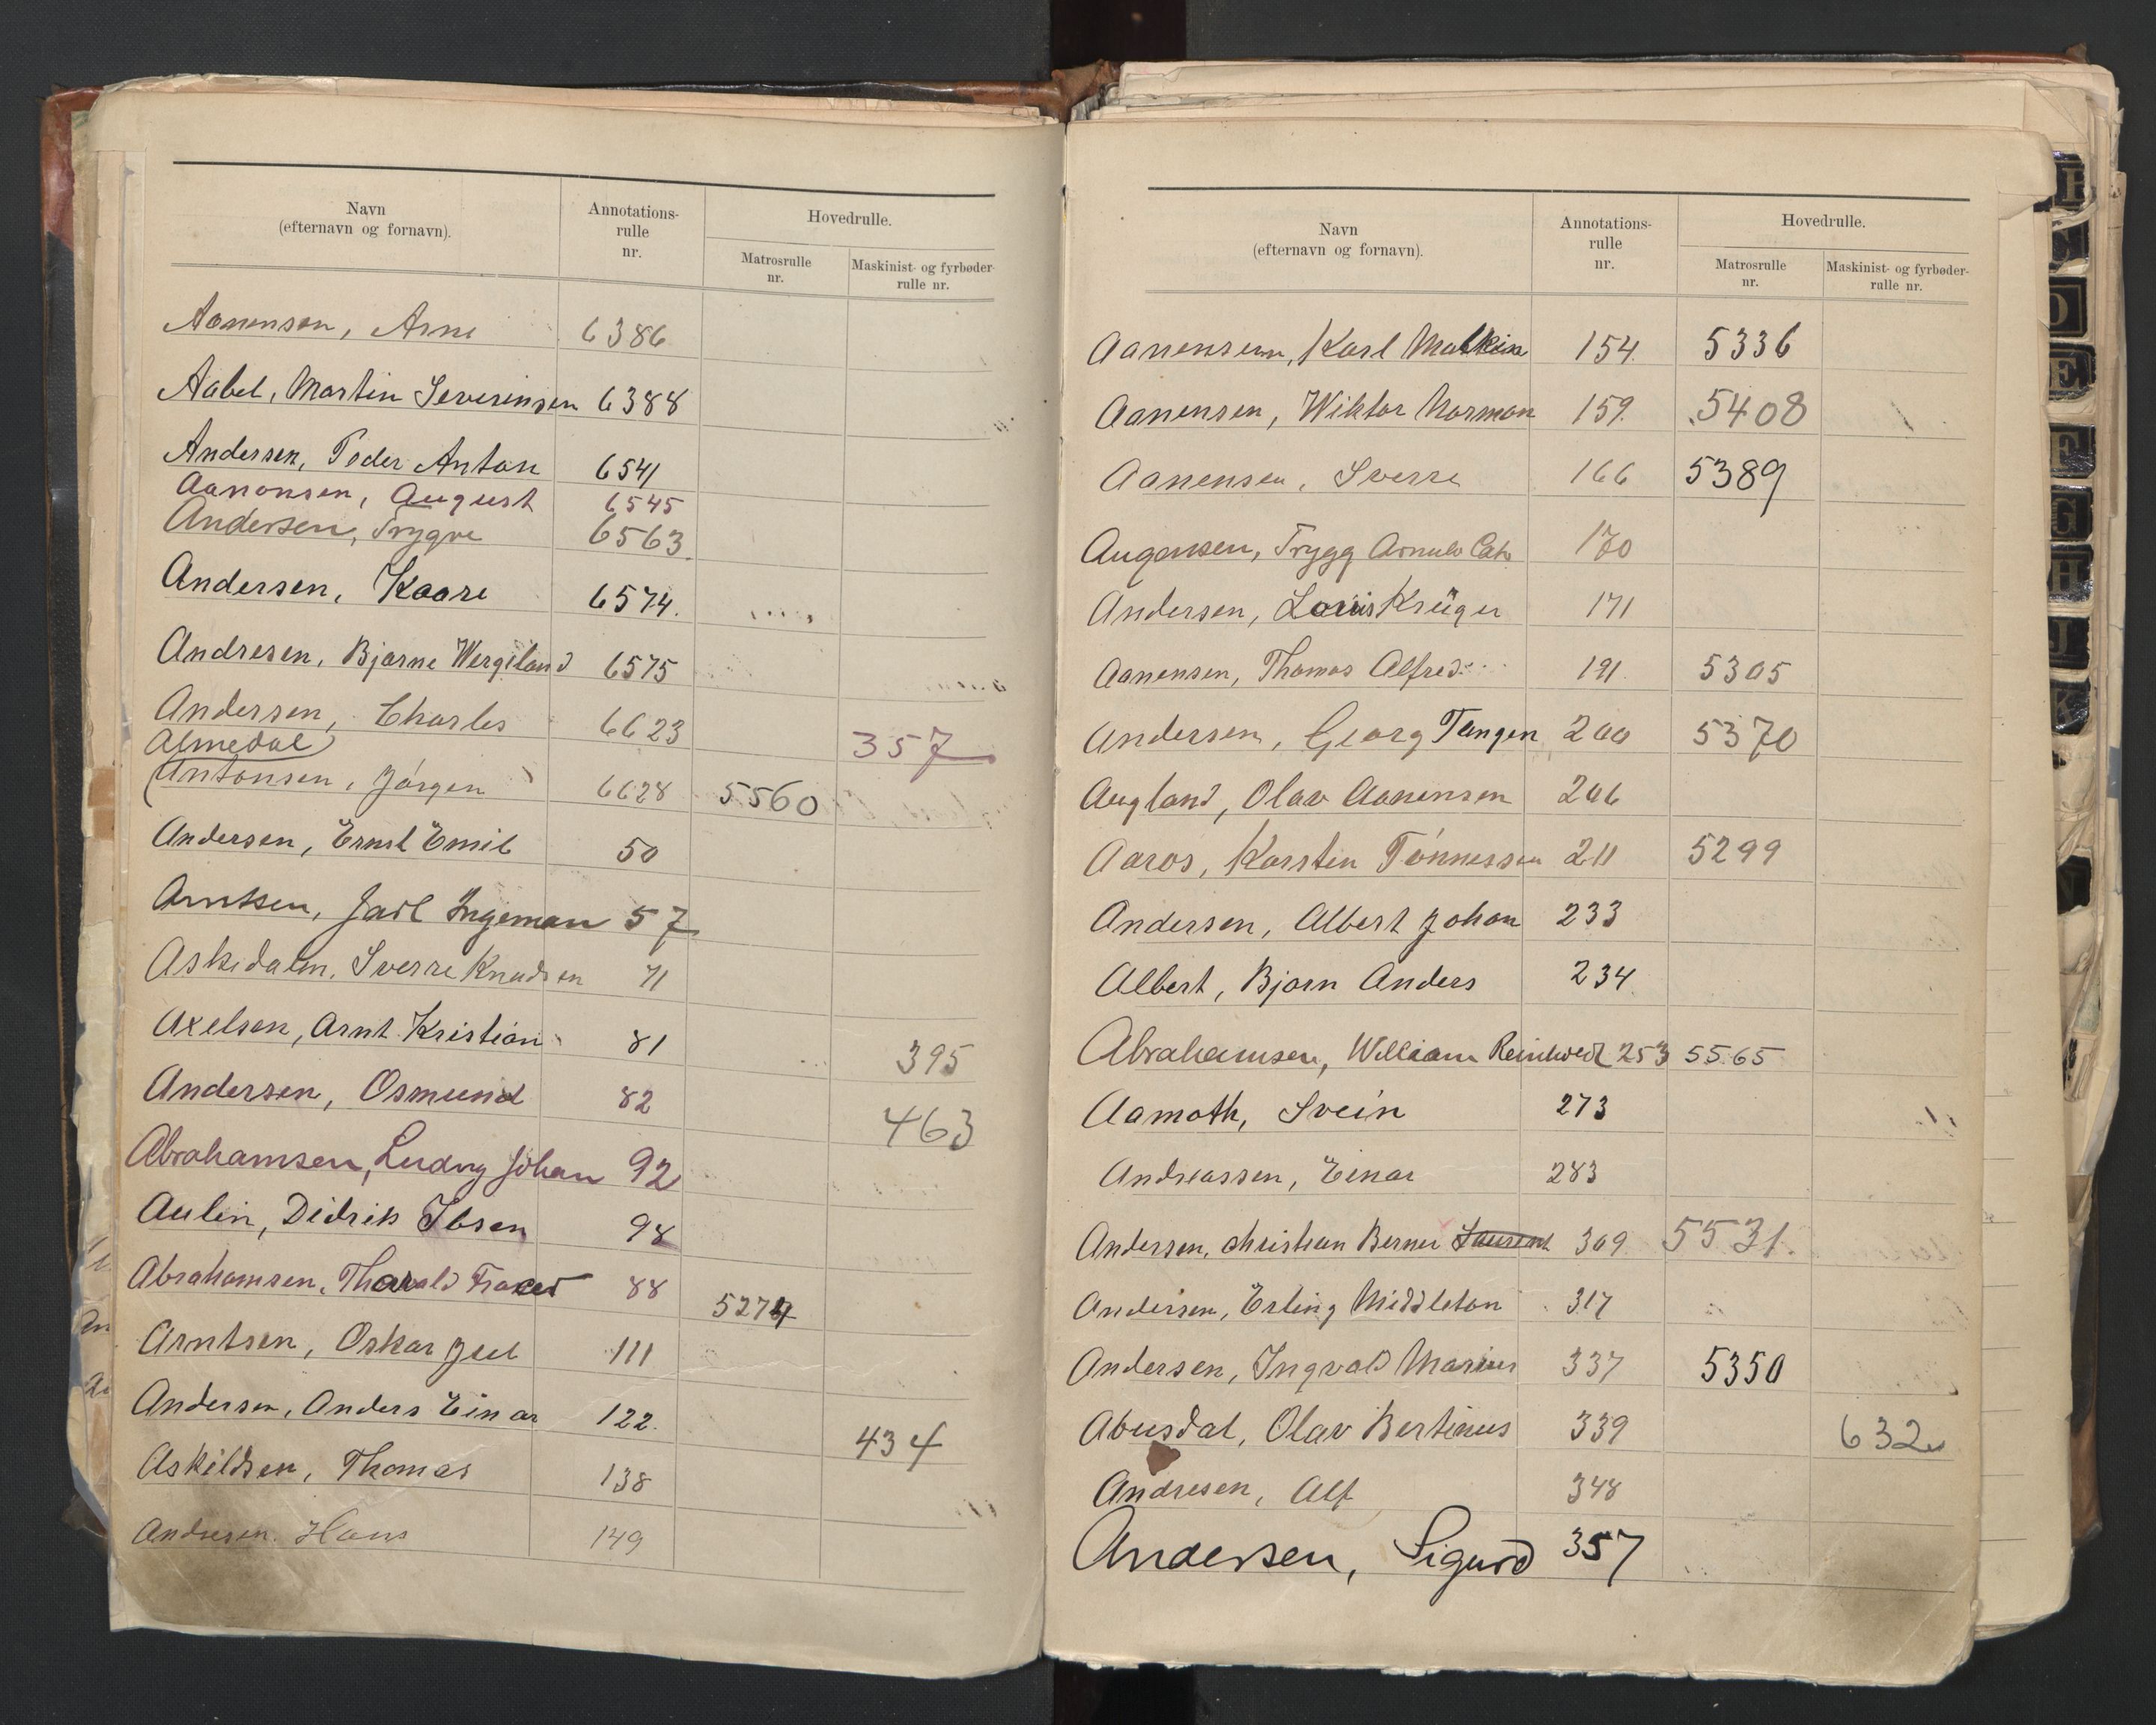 Navn
(efternavn og fornavn).
Annotations-
rulle
nr.
Hovedrulle.
Matrosrulle
nr.
Maskinist- og fyrbøder-
rulle nr.
Aanensen, Arne 6386
Aabel, Martin Severinsen 6388
Andersen, Peder Anton 6541
Aanonsen, August 6545
Andersen, Trygve 6563
Andersen, Kaare 6574.
Andresen, Bjarne Wergeland 6575
Andersen, Charles 6623 357
Almedal
Antonsen, Jørgen 6628 5560
Andersen, Ernst Emil 50
Arntsen, Jarl Ingeman 57
Askedalen, Sverre Knudsen 71
Axelsen, Arnt Kristian 81 395
Andersen, Osmund 82 463
Abrahamsen, Ludvig Johan 92
Aulin, Didrik Ibsen 98
Abrahamsen, Thorvald 88 5274
Arntsen, Oskar Juel 111
Andersen, Anders Einar 122. 434
Askildsen, Thomas 138
Andresen. Hans 149
Navn
(efternavn og fornavn).
Annotations-
rulle
nr.
Hovedrulle.
Matrosrulle
nr.
Maskinist- og fyrbøder-
rulle nr.
Aanensen, Karl 154. 5336
Aanensen, Wiktor Norman 159. 5408
Aanensen, Sverre 166 5389
Augensen, Trygg Arnulv 170
Andersen, Louis Krüger 171
Aanensen, Thomas Alfred 191. 5305
Andersen, Georg Tangen 200 5370
Augland, Olav Aanensen 206
Aaros, Karsten Tønnessen 211 5299
Andersen, Albert Johan 233
Albert, Bjørn Anders 234
Abrahamsen, William Reinhard 253 5565
Aamoth, Svein 273
Andreassen, Einar 283
Andersen, Christian Berner Laurent 309 5531.
Andersen, Erling Middleton 317
Andersen, Ingvald Marius 337 5350
Abusdal, Olav Bertinus 339 632
Andresen, Alf 348
Andersen, Sigurd 357